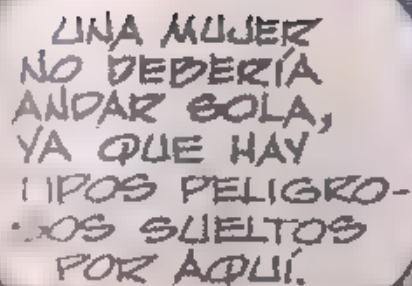 UNA MUJER
NO DEBERÍA
ANDAR SOLA,
YA QUE HAY
TIPOS PELIGRO-
SOS SUELTOS
POR AQUÍ.